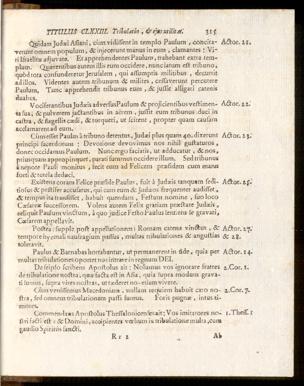 TITULUS CLXXIII. Tribulatio, & ejus utilitas. 315
Quidam Judæi Asiani, cùm vidissent in templo Paulum, concita- Actor. 21.
verunt omnem populum, & injecerunt manus in eum, clamantes: Vi-
ri Israëlitæ adjuvate. Et apprehendentes Paulum, trahebant extra tem-
plum. Quærentibus autem illis eum occidere, nunciatum est tribuno,
quòd tota confunderetur Jerusalem, qui assumptis militibus, decurrit
ad illos. Videntes autem tribunum & milites, cessaverunt percutere
Paulum. Tunc apprehendit tribunus eum, & jussit alligari catenis
duabus.
Vociferantibus Judæis adversùs Paulum & projicientibus vestimen- Actor. 22.
ta sua, & pulverem jactantibus in aërem, jussit eum tribunus duci in
castra, & flagellis cædi, & torqueri, ut sciret, propter quam causam
acclamarent ad eum.
Cùm esset Paulus à tribuno detentus, Judæi plus quàm 40. dixerunt Actor. 23.
principi sacerdotum: Devotione devovimus nos nihil gustaturos,
donec occidamus Paulum. Nunc ergo facitis, ut adducatur, & nos,
priusquam appropinquet, parati sumus occidere illum. Sed tribunus
à nepote Pauli monitus, fecit eum ad Felicem præsidem cum manu
forti & tutela deduci.
Existens coram Felice præside Paulus, fuit à Judæis tanquam sedi- Actor. 25.
tiosus & pestifer accusatus, qui cùm eum & Judæos frequenter audisset,
& tempus ita transisset, habuit quendam, Festum nomine, suo loco
Cæsareæ successorem. Volens autem Felix gratiam præstare Judæis,
reliquit Paulum vinctum, à quo judice Festo Paulus sentiens se gravari,
Cæsarem appellavit.
Postea supple post appellationem Romam etenim vinctus, & Actor. 27.
tempore hyemali naufragium passus, multas tribulationes & angustias & 28.
toleravit.
Paulus & Barnabas hortabantur, ut permanerent in fide, quia per Actor. 14.
multas tribulationes oportet nos intrare in regnum DEI.
De seipso scribens Apostolus ait: Nolumus vos ignorare fratres 2. Cor. 1.
de tribulatione nostra, quæ facta est in Asia, quia supra modum grava-
ti sumus, supra vires nostras, ut tæderet nos etiam vivere.
Cùm venissemus Macedoniam, nullam requiem habuit caro no- 2. Cor. 7.
stra, sed omnem tribulationem passi sumus. Foris pugnæ, intus ti-
mores.
Commendans Apostolus Thessalonicenses ait: Vos imitatores no- 1. Thess. 1
stri facti estis & Domini, accipientes verbum in tribulatione multa, cum
gaudio Spiritûs sancti.
Rr 2 Ab